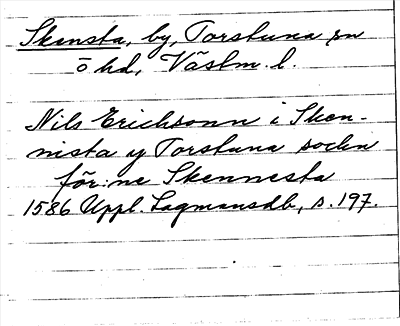 Skensta, by, Torstuna sn
ö hd, Västm. l.
Nils Erichsonn i Sken-
nista y Torstuna sochn
för:ne Skennesta
1586 Uppl. Lagmansdb, s. 197.